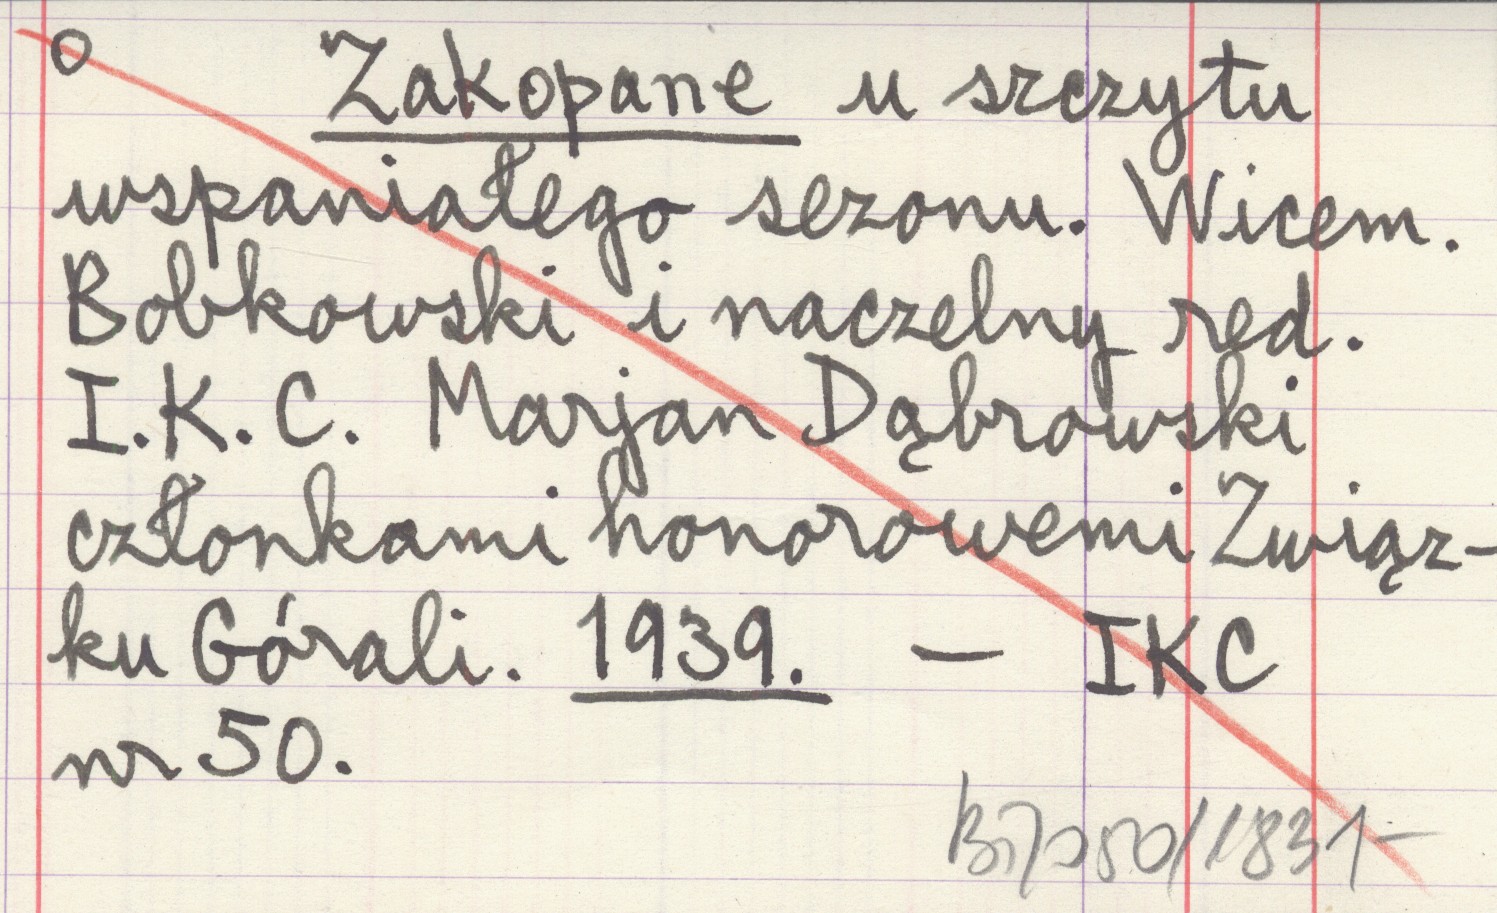 O Zakopane u szczytu
wspaniałego sezonu. Wicem.
Bobkowski i naczelny red.
I.K.C. Marjan Dąbrowski
członkami honorowemi Związ-
ku Górali. 1939. — IKC
nr 50.